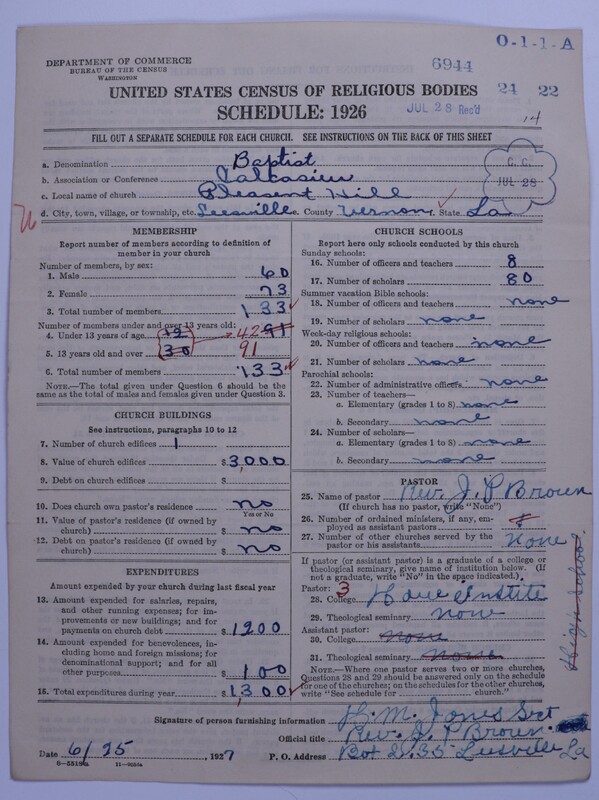 O-1-1-A
DEPARTMENT OF COMMERCE
BUREAU OF THE CENSUS
WASHINGTON
6944
UNITED STATES CENSUS OF RELIGIOUS BODIES
24 22
SCHEDULE: 1926
JUL 28 Rec'd
14
FILL OUT A SEPARATE SCHEDULE FOR EACH CHURCH. SEE INSTRUCTIONS ON THE BACK OF THIS SHEET
a. Denomination Baptist
b. Association or Conference Calcasieu
c. Local name of church Pleasent Hill
C. C. JUL 28
d. City, town, village, or township, etc. Leesville e. County Vernon f. State La
MEMBERSHIP
Report number of members according to definition of
member in your church
Number of members, by sex:
1. Male 60
2. Female 73
3. Total number of members 133
Number of members under and over 13 years old:
4. Under 13 years of age 12 42 91
5. 13 years old and over 30 91
6. Total number of members 133
NOTE.—The total given under Question 6 should be the
same as the total of males and females given under Question 3.
CHURCH BUILDINGS
See instructions, paragraphs 10 to 12
7. Number of church edifices 1
8. Value of church edifices $3,000
9. Debt on church edifices $
10. Does church own pastor's residence no
Yes or No
11. Value of pastor's residence (if owned by
church) $ no
12. Debt on pastor's residence (if owned by
church) $ no
EXPENDITURES
Amount expended by your church during last fiscal year
13. Amount expended for salaries, repairs,
and other running expenses; for im-
provements or new buildings; and for
payments on church debt $1200
14. Amount expended for benevolences, in-
cluding home and foreign missions; for
denominational support; and for all
other purposes $100
15. Total expenditures during year $1300
CHURCH SCHOOLS
Report here only schools conducted by this church
Sunday schools:
16. Number of officers and teachers 8
17. Number of scholars 80
Summer vacation Bible schools:
18. Number of officers and teachers none
19. Number of scholars none
Week-day religious schools:
20. Number of officers and teachers none
21. Number of scholars none
Parochial schools:
22. Number of administrative officers none
23. Number of teachers—
a. Elementary (grades 1 to 8) none
b. Secondary none
24. Number of scholars—
a. Elementary (grades 1 to 8) none
b. Secondary none
PASTOR
25. Name of pastor Rev. J. P Brown
(If church has no pastor, write "None")
26. Number of ordained ministers, if any, em-
ployed as assistant pastors
27. Number of other churches served by the
pastor or his assistants none
If pastor (or assistant pastor) is a graduate of a college or
theological seminary, give name of institution below. (If
not a graduate, write "No" in the space indicated.)
Pastor: 3
28. College
29. Theological seminary
Assistant pastor:
30. College none
31. Theological seminary none
High School
NOTE.—Where one pastor serves two or more churches,
Questions 28 and 29 should be answered only on the schedule
for one of the churches; on the schedules for the other churches,
write "See schedule for church."
Signature of person furnishing information H. M. Jones Sect
Official title Rev. J. P Brown
Date 6/25, 1927 P. O. Address Box 235 Leesville La